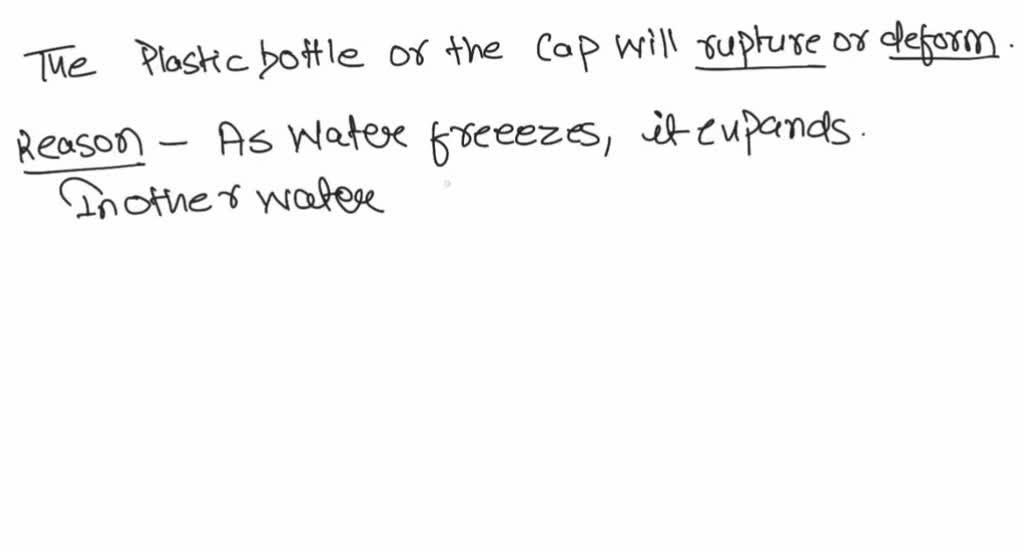 The Plastic bottle or the cap will rupture or deform.
Reason – As water freeezes, it expands.
In other water